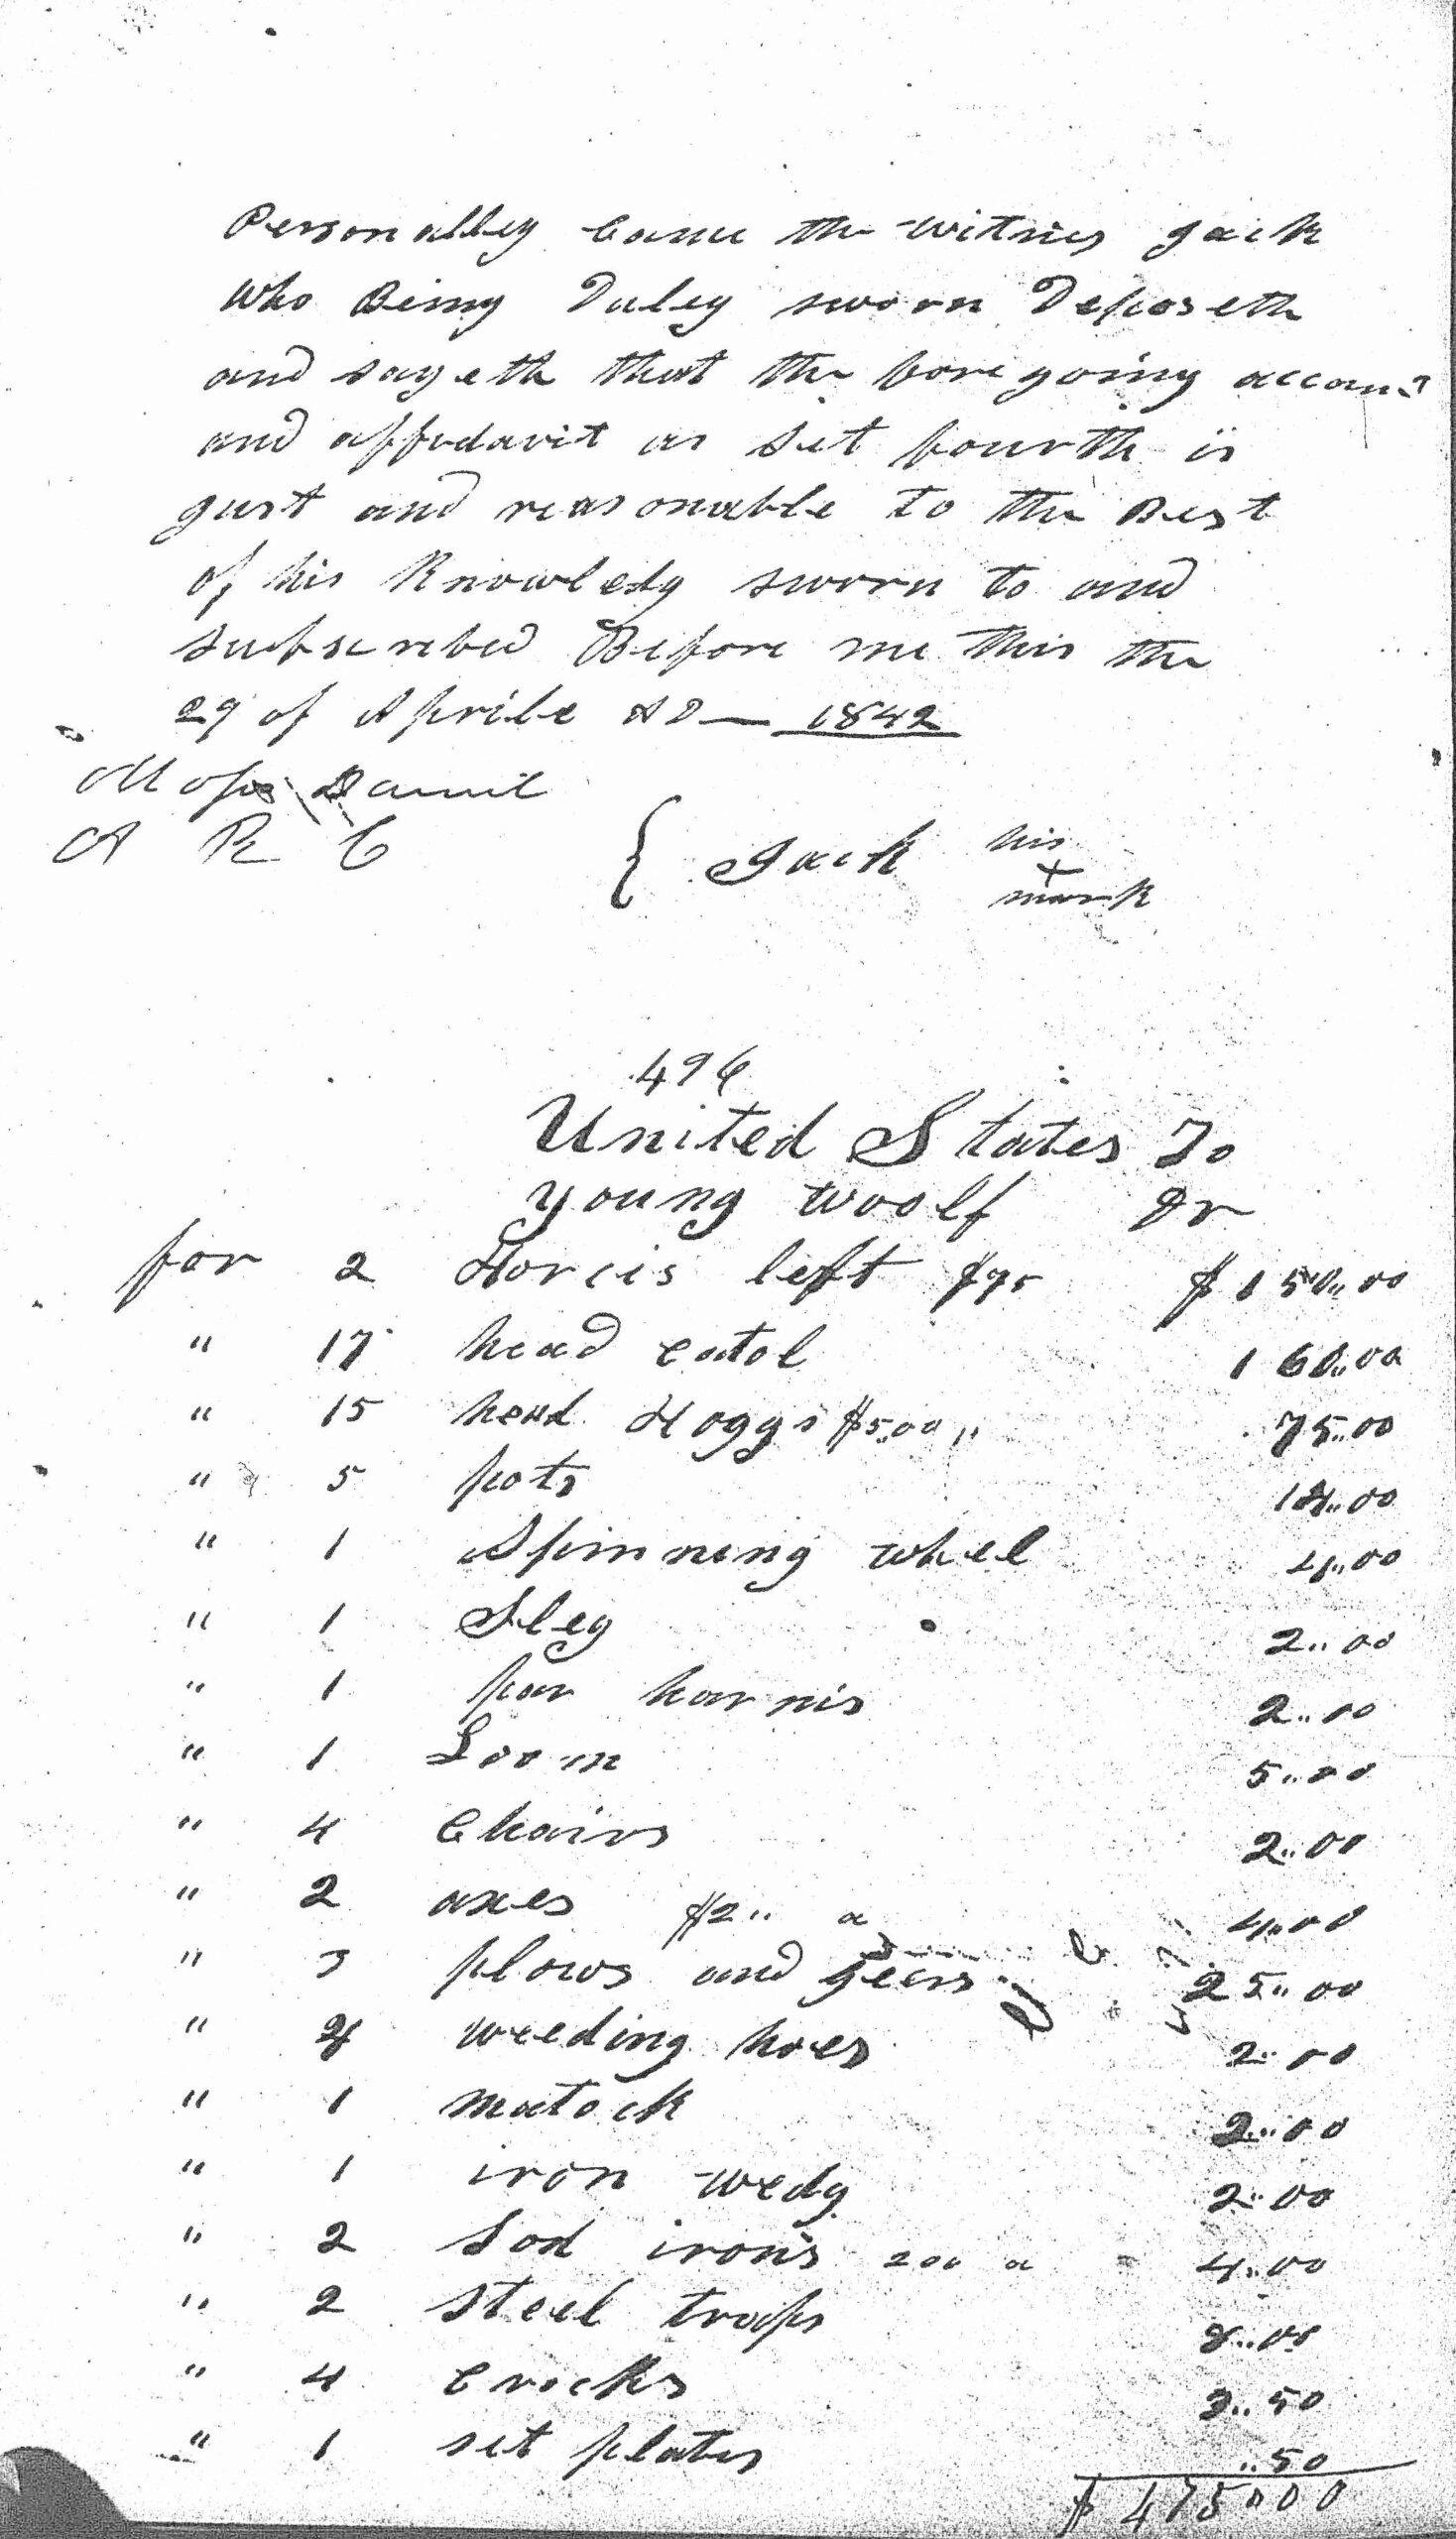 Personalley Came the witnies Jack
Who Being Duley sworn Deposeth
and sayeth that the foregoing account
and affudavit as set fourth is
gust and reasonable to the Best
of his Knowledg sworn to and
subscrebed Before me this the
29 of Aprile AD — 1842
Moses Daniel
A R C { Jack his
x
mark
496
United States To
young woolf Dr
for 2 Horcis left $75 $150..00
" 17 head catol 160..00
" 15 head Hoggs $5.00 " 75..00
" 5 pots 14..00
" 1 Spinning whel 4..00
" 1 Sley 2..00
" 1 par harnis 2..00
" 1 Loom 5..00
" 4 Chairs 2..00
" 2 axes $2.. a 4..00
" 3 plows and geers 25..00
" 4 weeding hoes 2..00
" 1 matock 2..00
" 1 iron wedg 2..00
" 2 Sod irons 200 a 4..00
" 2 steel traps 8..00
" 4 Crocks 3..50
" 1 set plates ..50
$475"00